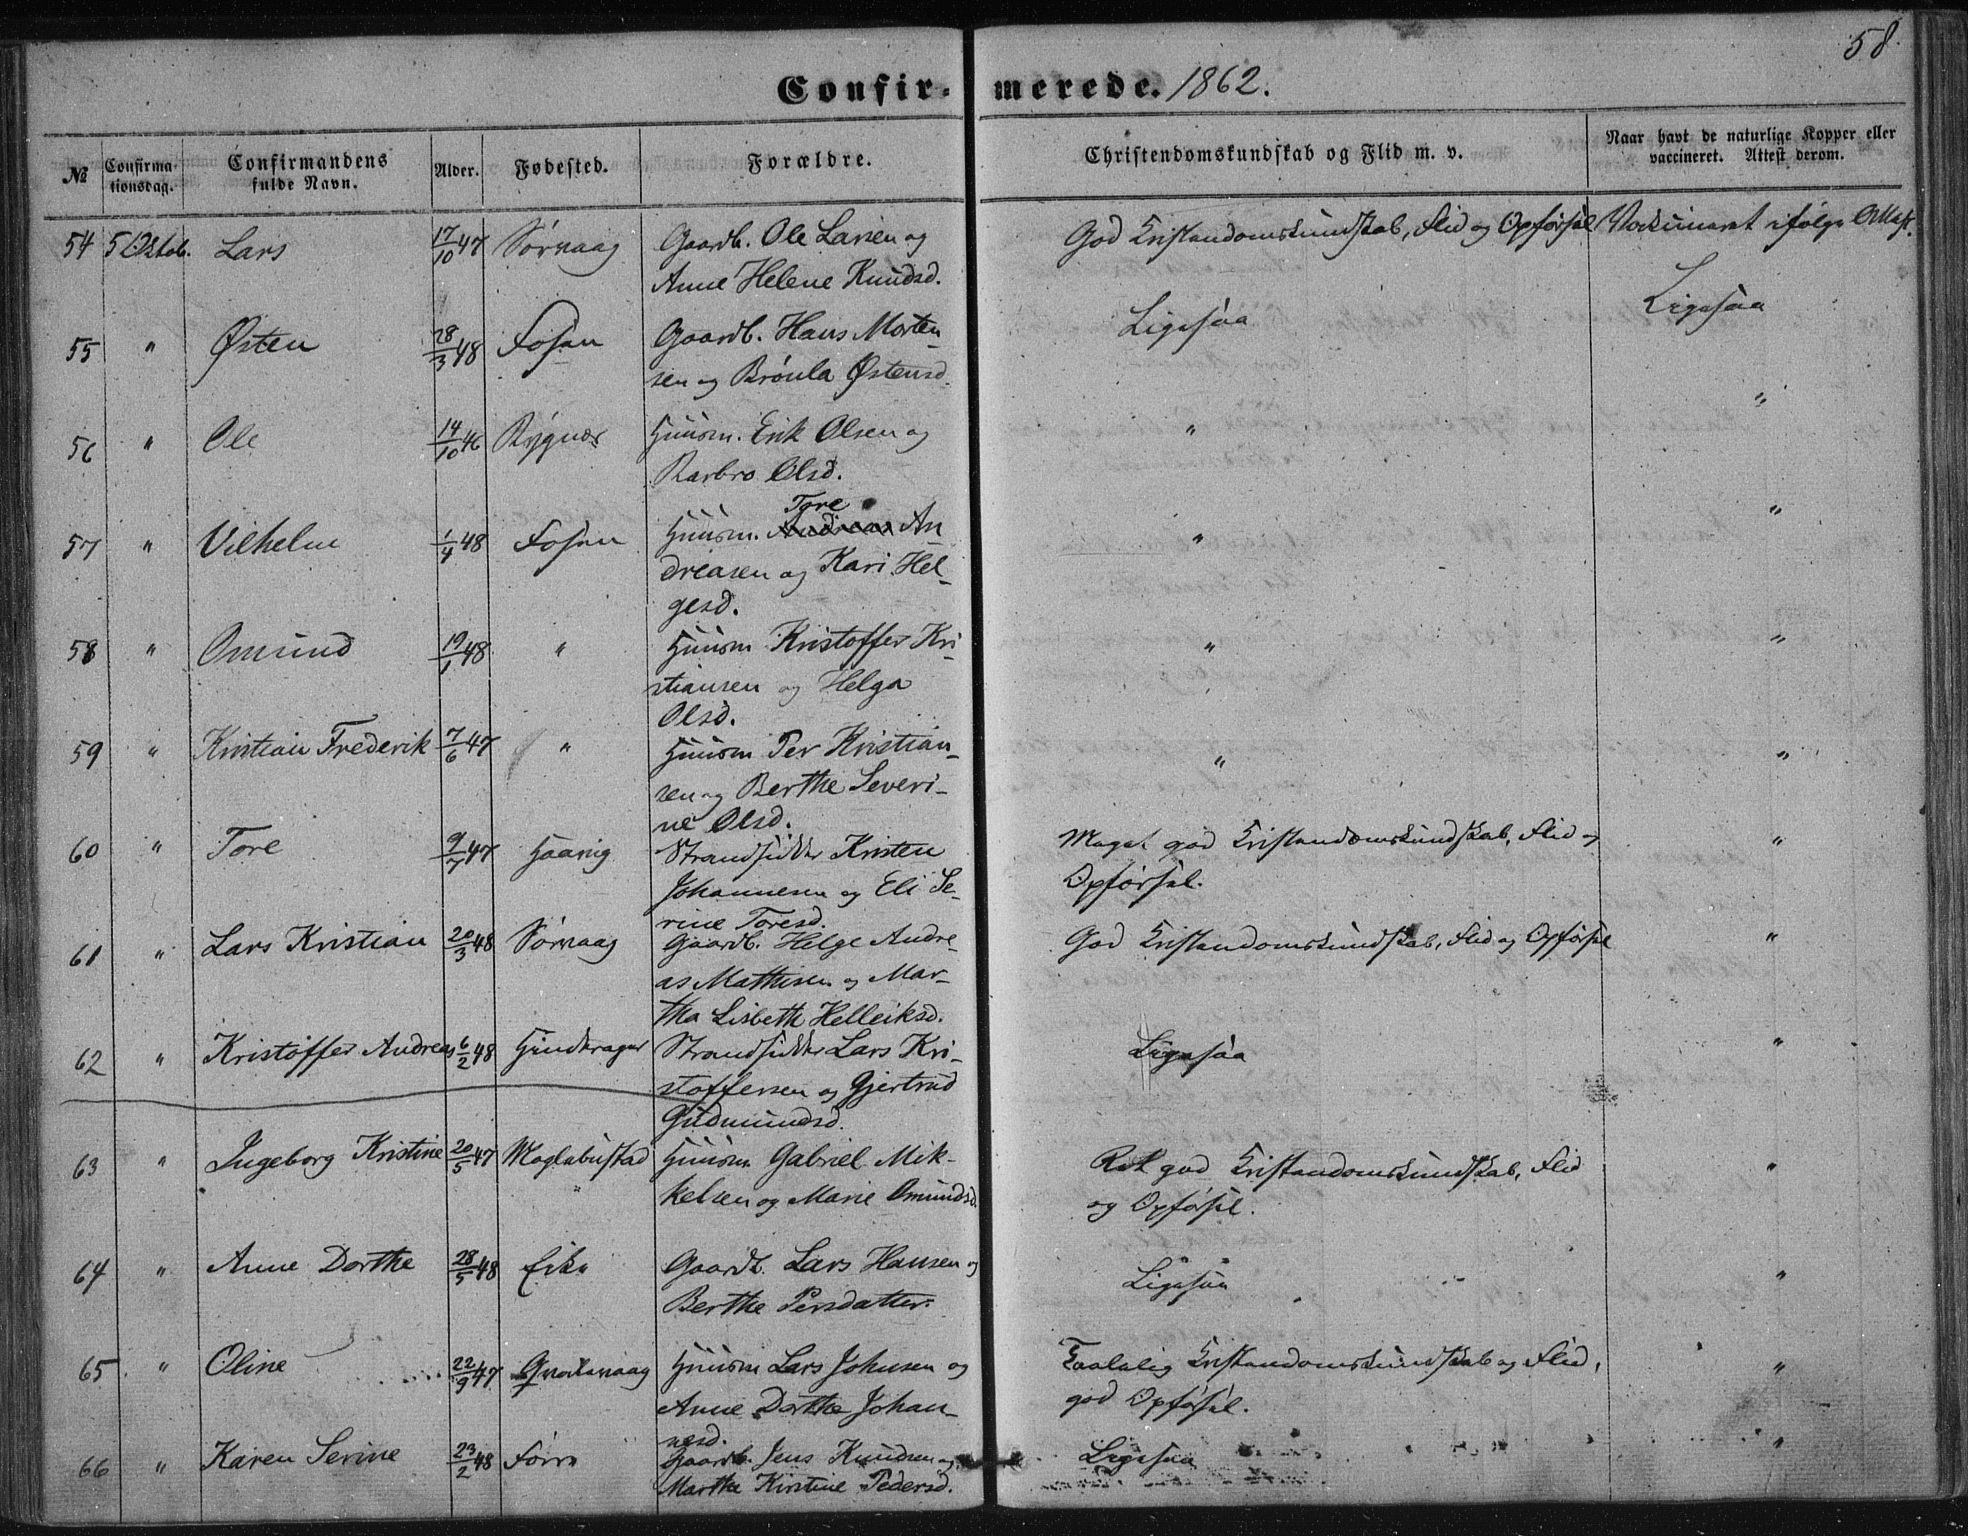 58.
Confirmerede. 1862.
№ Confirmationsdag. Confirmandens fulde Navn. Alder. Fødested. Forældre. Christendomskundskab og Flid m. v. Naar havt de naturlige Kopper eller vaccineret. Attest derom.
54 5 Oktob. Lars 17/10 47 Sørvaag Gaardb. Ole Larsen og God Kristendomskundskab, Flid og Opførsel Vaksineret ifølge Attest.
Anne Helene Knudsd.
55 " Østen 28/3 48 Fosen Gaardb. Hans Morten- Ligesaa Ligesaa
sen og Brønla Østensd.
56 " Ole 14/10 46 Rygnes Huusm. Erik Olsen og " "
Barbro Olsd.
57 " Vilhelm 1/4 48 Fosen Huusm. Tore An " "
dreasen og Kari Hel-
gesd.
58 " Omund 19/1 48 " Huusm Kristoffer Kri- " "
stiansen og Helga
Olsd.
59 " Kristian Frederik 7/6 47 " Huusm Per Kristian- " "
sen og Berthe Severi-
ne Olsd.
60 " Tore 9/7 47 Haavig Strandsidder Kristen Meget god Kristendomskundskab, Flid og "
Johannesen og Eli Se- Opførsel.
rine Toresd.
61 " Lars Kristian 20/3 48 Sørvaag Gaardb. Helge Andre- God Kristendomskundskab, Flid og Opførsel "
as Mathisen og Mar-
tha Lisbeth Helleiksd.
62 " Kristoffer Andreas 6/2 48 Strandsidder Lars Kri- Ligesaa "
stoffersen og Gjertrud
Gudmundsd.
63 " Ingeborg Kristine 20/5 47 Møglebustad Huusm. Gabriel Mik- Ret god Kristendomskundskab, Flid "
kelsen og Marie Omundsd. og Opførsel.
64 " Anne Dorthe 28/5 48 Eike Gaardb. Lars Hansen og Ligesaa "
Berthe Persdatter.
65 " Oline 22/9 47 Kvalavaag Huusm Lars Johnsen og Taalelig Kristendomskundskab og Flid, "
Anne Dorthe Johan- god Opførsel.
nesd.
66 " Karen Serine 23/2 48 Førre Gaardb. Jens Knudsen og Ligesaa "
Marthe Kirstine Pedersd.